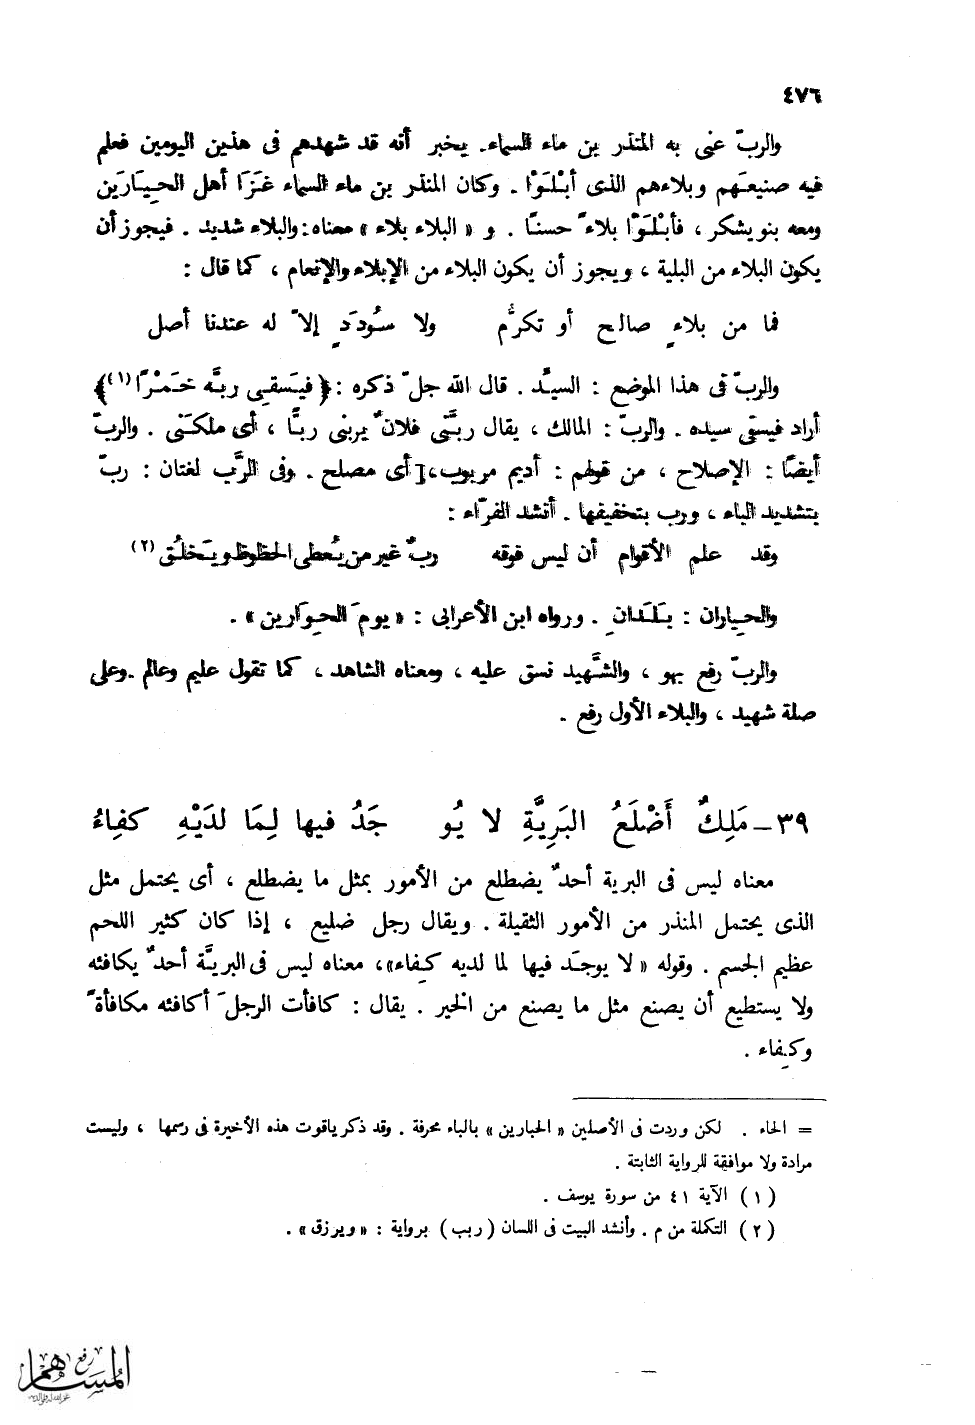 ٤٧٦
والربّ عنى به المنذر بن ماء السماء. يخبر أنه قد شهدهم فى هذين اليومين فعلم
فيه صنيعَهم وبلاءهم الذى أبْلَوْا . وكان المنذر بن ماء السماء غَزَا أهل الحِيارَين
ومعه بنو يشكر ، فأبْلَوْا بلاءً حسنًا . و « البلاء بلاء » معناه : والبلاء شديد . فيجوز أن
يكون البلاء من البلية ، ويجوز أن يكون البلاء من الإبلاء والإنعام ، كما قال :
فما من بلاءٍ صالح أو تكرُّم ولا سُودَدٍ إلاّ له عندنا أصل
والربّ فى هذا الموضع : السيِّد . قال الله جلّ ذكره : ﴿ فيَسقِى ربَّه خَمْرًا (١) ﴾
أراد فيسقى سيده . والربّ : المالك ، يقال ربَّنى فلانٌ يربنى ربًّا ، أى ملكَنى . والربّ
أيضًا : الإصلاح ، من قولهم : أديم مربوب ، [ أى مصلح . وفى الرَّب لغتان : ربّ
بتشديد الباء ، ورب بتخفيفها . أنشد الفرّاء :
وقد علم الأقوام أن ليس فوقه ربٌ غير من يُعطى الحظوظ ويَخلُق (٢)
والحِياران : بَلَدانِ . ورواه ابن الأعرابى : « يومَ الحِوَارين » .
والربّ رفع بهو ، والشَّهيد نسق عليه ، ومعناه الشاهد ، كما تقول عليم وعالم . وعلى
صلة شهيد ، والبلاء الأول رفع .
٣٩ – مَلِكٌ أَضْلَعُ البَرِيَّةِ لا يُو جَدُ فيها لِمَا لدَيْهِ كفِاءُ
معناه ليس فى البرية أحدٌ يضطلع من الأمور بمثل ما يضطلع ، أى يحتمل مثل
الذى يحتمل المنذر من الأمور الثقيلة . ويقال رجل ضليع ، إذا كان كثير اللحم
عظيم الجسم . وقوله « لا يوجَد فيها لما لديه كِفاء » ، معناه ليس فى البريَّة أحدٌ يكافئه
ولا يستطيع أن يصنع مثل ما يصنع من الخير . يقال : كافأت الرجلَ أكافئه مكافأةً
وكِفاء .
= الحاء . لكن وردت فى الأصلين « الحبارين » بالباء محرفة . وقد ذكر ياقوت هذه الأخيرة فى رسمها ، وليست
مرادة ولا موافقة للرواية الثابتة .
(١) الآية ٤١ من سورة يوسف .
(٢) التكملة من م . وأنشد البيت فى اللسان (ربب) برواية : « ويرزق » .